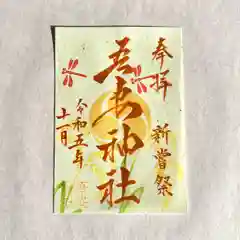 奉拝
新嘗祭
神社
令和五年
十一月